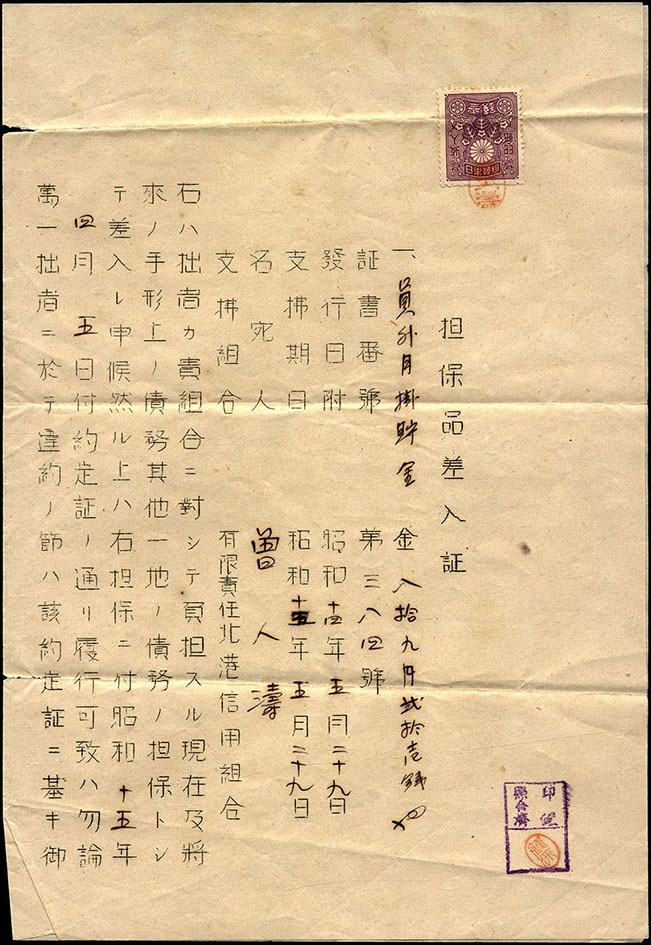 担保品差入証
一、員外月掛貯金 金 八拾九円弐拾壱銭也
証書番號 第三八四號
發行日附 昭和十四年五月二十九日
支拂期日 昭和十五年五月二十九日
名宛人 曽人濤
支拂組合 有限責任北港信用組合
右ハ拙者カ貴組合ニ對シテ負担スル現在及將
來ノ手形上ノ債務其他一地ノ債務ノ担保トシ
テ差入レ申候然ル上ハ右担保ニ付昭和十五年
四月五日付約定証ノ通リ履行可致ハ勿論
萬一拙者ニ於テ違約ノ節ハ該約定証ニ基キ御
印鑑
照合濟